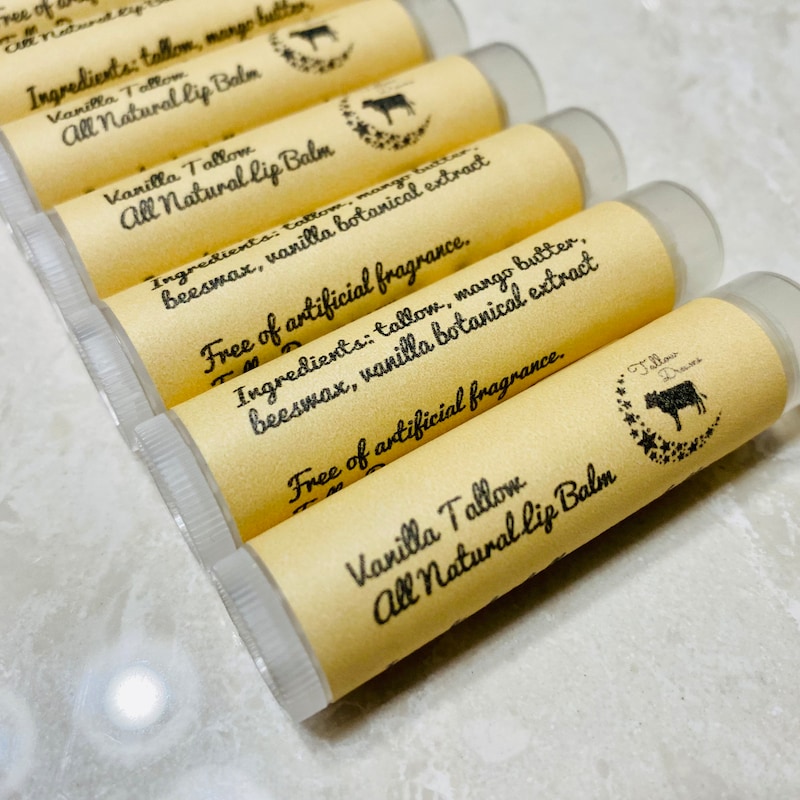 Free of
All Natural Lip Balm
Ingredients: tallow, mango butter,
Vanilla Tallow
All Natural Lip Balm
Vanilla Tallow
All Natural Lip Balm
Ingredients: tallow, mango butter,
beeswax, vanilla botanical extract
Free of artificial fragrance.
Ingredients: tallow, mango butter,
beeswax, vanilla botanical extract
Free of artificial fragrance.
Tallow
Dreams
Vanilla Tallow
All Natural Lip Balm